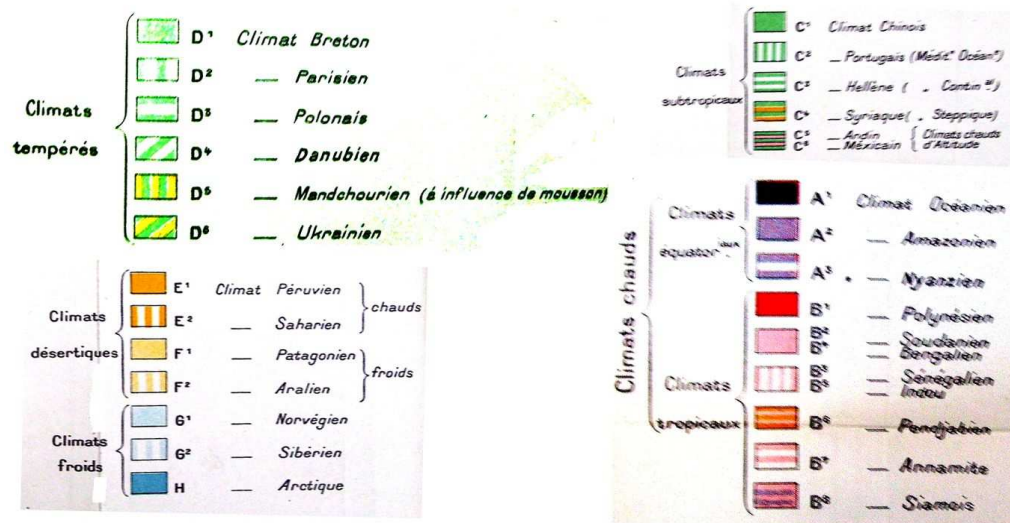 Climats
tempérés
D¹ Climat Breton
D² — Parisien
D³ — Polonais
D⁴ — Danubien
D⁵ — Mandchourien (à influence de mousson)
D⁶ — Ukrainien
Climats
désertiques
E¹ Climat Péruvien
E² — Saharien
chauds
F¹ — Patagonien
F² — Aralien
froids
Climats
froids
G¹ — Norvégien
G² — Sibérien
H — Arctique
Climats
subtropicaux
C¹ Climat Chinois
C² — Portugais (Médit.ⁿ Océanⁿ)
C³ — Hellène ( „ Contin.ᵃˡ)
C⁴ — Syriaque ( „ Steppique)
C⁵ — Andin
C⁶ — Méxicain
Climats chauds
d'Altitude
Climats chauds
Climats
équator.ᵃᵘˣ
A¹ Climat Océanien
A² — Amazonien
A³ — Nyanzien
Climats
tropicaux
B¹ — Polynésien
B² — Soudanien
B⁴ — Bengalien
B³ — Sénégalien
B⁵ — Indou
B⁶ — Pendjabien
B⁷ — Annamite
B⁸ — Siamois